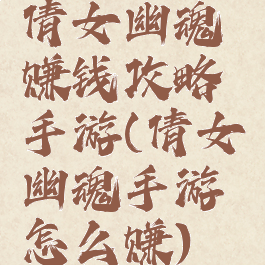 倩女幽魂
赚钱攻略
手游(倩女
幽魂手游
怎么赚)